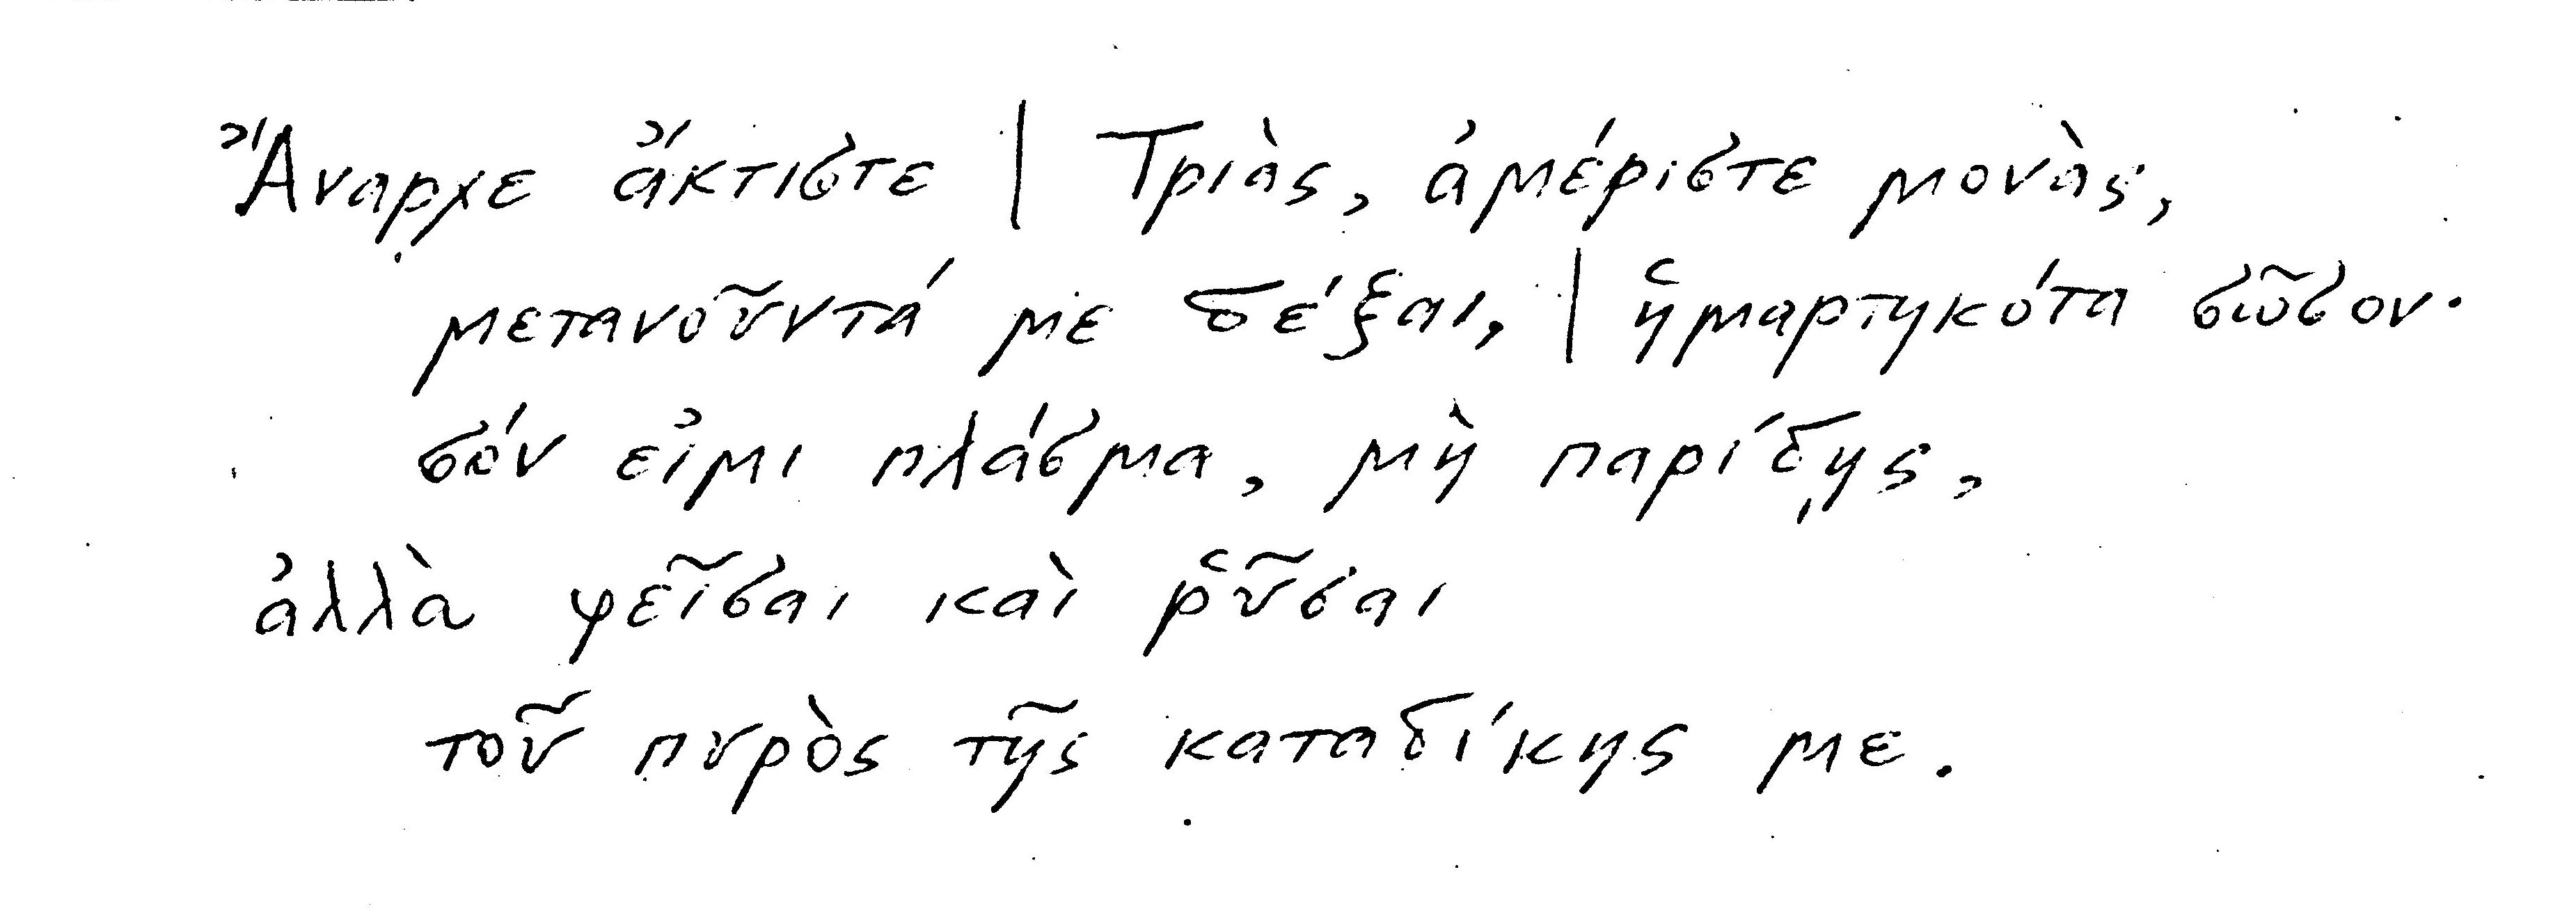 Ἄναρχε ἄκτιστε | Τριὰς, ἀμέριστε μονὰς,
μετανοῦντά με δέξαι, | ἡμαρτηκότα σῶσον·
σόν εἰμι πλάσμα, μὴ παρίδῃς,
ἀλλὰ φεῖσαι καὶ ῥῦσαι
τοῦ πυρὸς τῆς καταδίκης με.